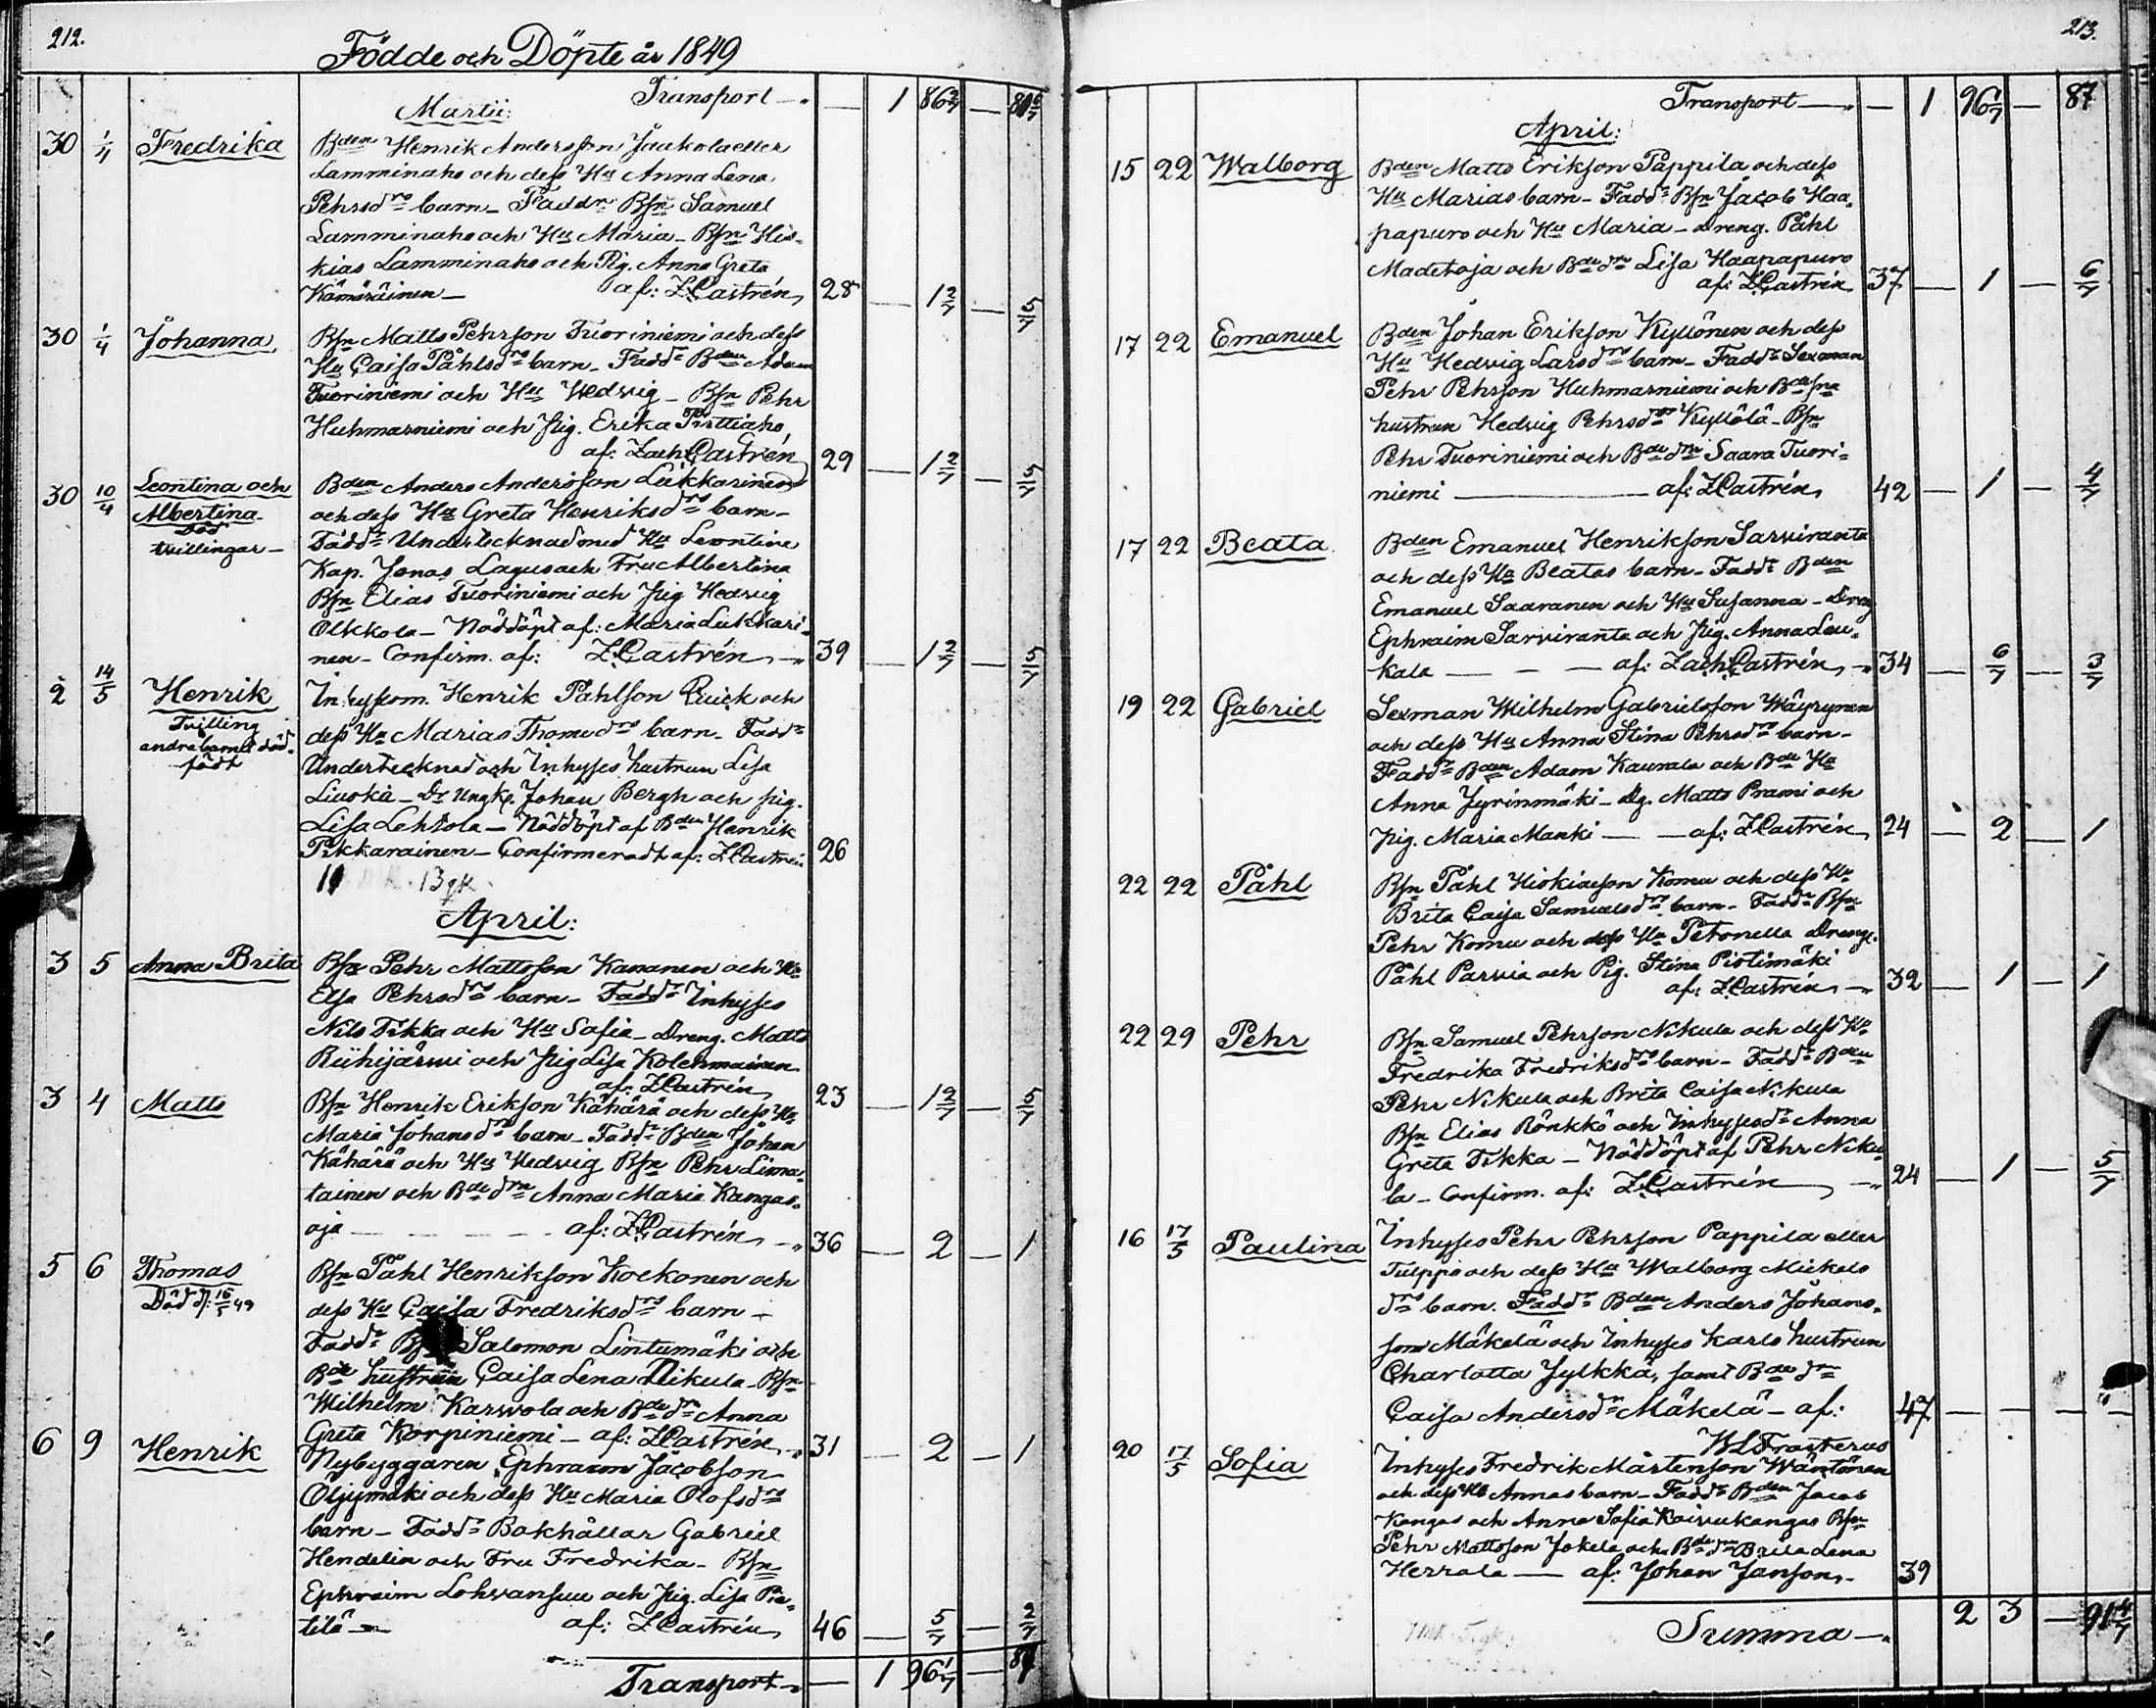 212.
Födde och Döpte år 1849
Martii:
Transport — 1 86 2/7 —
30 1/4 Fredrika Bden Henrik Andersson Jaakola eller
Lamminaho och dess Hu Anna Lena
Pehrsdrs barn – Faddr Bsn Samuel
Lamminaho och Hu Maria – Bsn His-
kias Lamminaho och Pig. Anna Greta
Kämäräinen – af: Z.Castrén 28 — 1 2/7 — 5/7
30 1/4 Johanna Bsn Matts Pehrson Tuoriniemi och dess
Hu Caisa Påhlsdrs barn – Faddr Bden Adam
Tuoriniemi och Hu Hedvig – Bsn Pehr
Huhmarniemi och pig. Erika Pirttiaho
af: Zach Castrén 29 — 1 2/7 — 5/7
30 10/4 Leontina och Bden Anders Andersson Lukkarinen
Albertina och dess Hu Greta Henriksdrs barn –
Död Faddr Undertecknad med Hu Leontine
tvillingar – Kap. Jonas Lagus och Fru Albertina
Bsn Elias Tuoriniemi och pig Hedvig
Olkkola – Nöddöpt af: Maria Lukkari-
nen – Confirm. af: Z.Castrén 39 — 1 2/7 — 5/7
2 14/5 Henrik Inhyssom. Henrik Påhlson Quick och
Tvilling dess Hu Marias Thomedrs barn – Faddr
andra barnet död-
födt Undertecknad och Inhyses hustrun Lisa
Liuska – Dr Ungk. Johan Bergh och pig.
Lisa Lehtola – Nöddöpt af Bden Henrik
Pikkarainen – Confirmeradt af: Z.Castrén 26
April:
3 5 Anna Brita Bsn Pehr Mattsson Kananen och Hu
Elsa Pehrsdrs barn – Faddr Inhyses
Nils Tikka och Hu Sofia – Dreng. Matts
Riihijärwi och pig Lisa Kolehmainen
af: Z.Castrén 23 — 1 2/7 — 5/7
3 4 Matts Bsn Henrik Erikson Kähärä och dess Hu
Maria Johansdrs barn – Faddr Bden Johan
Kähärä och Hu Hedvig Bsn Pehr Lima-
tainen och Bdedrn Anna Maria Kangas-
oja — af: Z.Castrén 36 — 2 — 1
5 6 Thomas Bsn Påhl Henrikson Kockonen och
Död d: 16/5 49 dess Hu Caisa Fredriksdrs barn –
Faddr Bsn Salomon Lintumäki och
Bde hustrun Caisa Lena Nikula – Bsn
Wilhelm Karwola och Bdedrn Anna
Greta Korpiniemi – af: Z.Castrén 31 — 2 — 1
6 9 Henrik Nybyggaren Ephraim Jacobson
Öljymäki och dess Hu Maria Olofsdrs
barn – Faddr Bokhållar Gabriel
Hendelin och Fru Fredrika – Bsn
Ephraim Lohvansuu och pig. Lisa Pie-
tilä — af: Z.Castrén 46 — 5/7 — 2/7
Transport — 1 96 1/7 — 87
213.
Transport — 1 96 1/7 — 87
April:
15 22 Walborg Bden Matts Erikson Pappila och dess
Hu Marias barn – Faddr Bsn Jacob Haa-
papuro och Hu Maria – Dreng. Påhl
Madetoja och Bdedrn Lisa Haapapuro
af: Z.Castrén 37 — 1 — 6/7
17 22 Emanuel Bden Johan Erikson Kyllönen och dess
Hu Hedvig Larsdrs barn – Faddr Sexman
Pehr Pehrson Huhmarniemi och Bdesne
hustrun Hedvig Pehrsdr Kyllölä – Bsn
Pehr Tuoriniemi och Bdedrn Saara Tuori-
niemi — af: Z.Castrén 42 — 1 — 4/7
17 22 Beata Bden Emanuel Henrikson Sarviranta
och dess Hu Beatas barn – Faddr Bden
Emanuel Saaranen och Hu Susanna – Dreng
Ephraim Sarviranta och pig. Anna Leu-
kala — af: Zach Castrén 34 — 6/7 — 3/7
19 22 Gabriel Sexman Wilhelm Gabrielsson Wäyrynen
och dess Hu Anna Stina Pehrsdrs barn –
Faddr Bden Adam Kaurala och Bde Hu
Anna Jyrinmäki – Dg. Matts Prami och
pig. Maria Manki — af: Z.Castrén 24 — 2 — 1
22 22 Påhl Bsn Påhl Hiskiasson Komu och dess Hu
Brita Caisa Samuelsdrs barn – Faddr Bsn
Pehr Komu och dess Hu Petronella Dreng.
Påhl Parvia och Pig. Stina Pistimäki
af: Z.Castrén 32 — 1 — 1
22 29 Pehr Bsn Samuel Pehrson Nikula och dess Hu
Fredrika Fredriksdrs barn – Faddr Bden
Pehr Nikula och Brita Caisa Nikula
Bsn Elias Rönkkö och Inhysesdr Anna
Greta Tikka – Nöddöpt af Pehr Niku-
la – Confirm. af: Z.Castrén 24 — 1 — 5/7
16 17/5 Paulina Inhyses Pehr Pehrson Pappila eller
Tulppo och dess Hu Walborg Mickels
drs barn. Faddr Bden Anders Johans-
son Mäkelä och Inhyses karls hustrun
Charlotta Jylkkä, samt Bdedrn
Caisa Andersdr Mäkelä – af: 47 — — — —
W L Frosterus
20 17/5 Sofia Inhyses Fredrik Mårtenson Wäntönen
och dess Hu Annas barn – Faddr Bden Jacob
Kangas och Anna Sofia Koivukangas Bsn
Pehr Mattsson Jokela och Bdedrn Brita Lena
Herrala — af: Johan Janson 39
Summa — 2 3 — 91 4/7